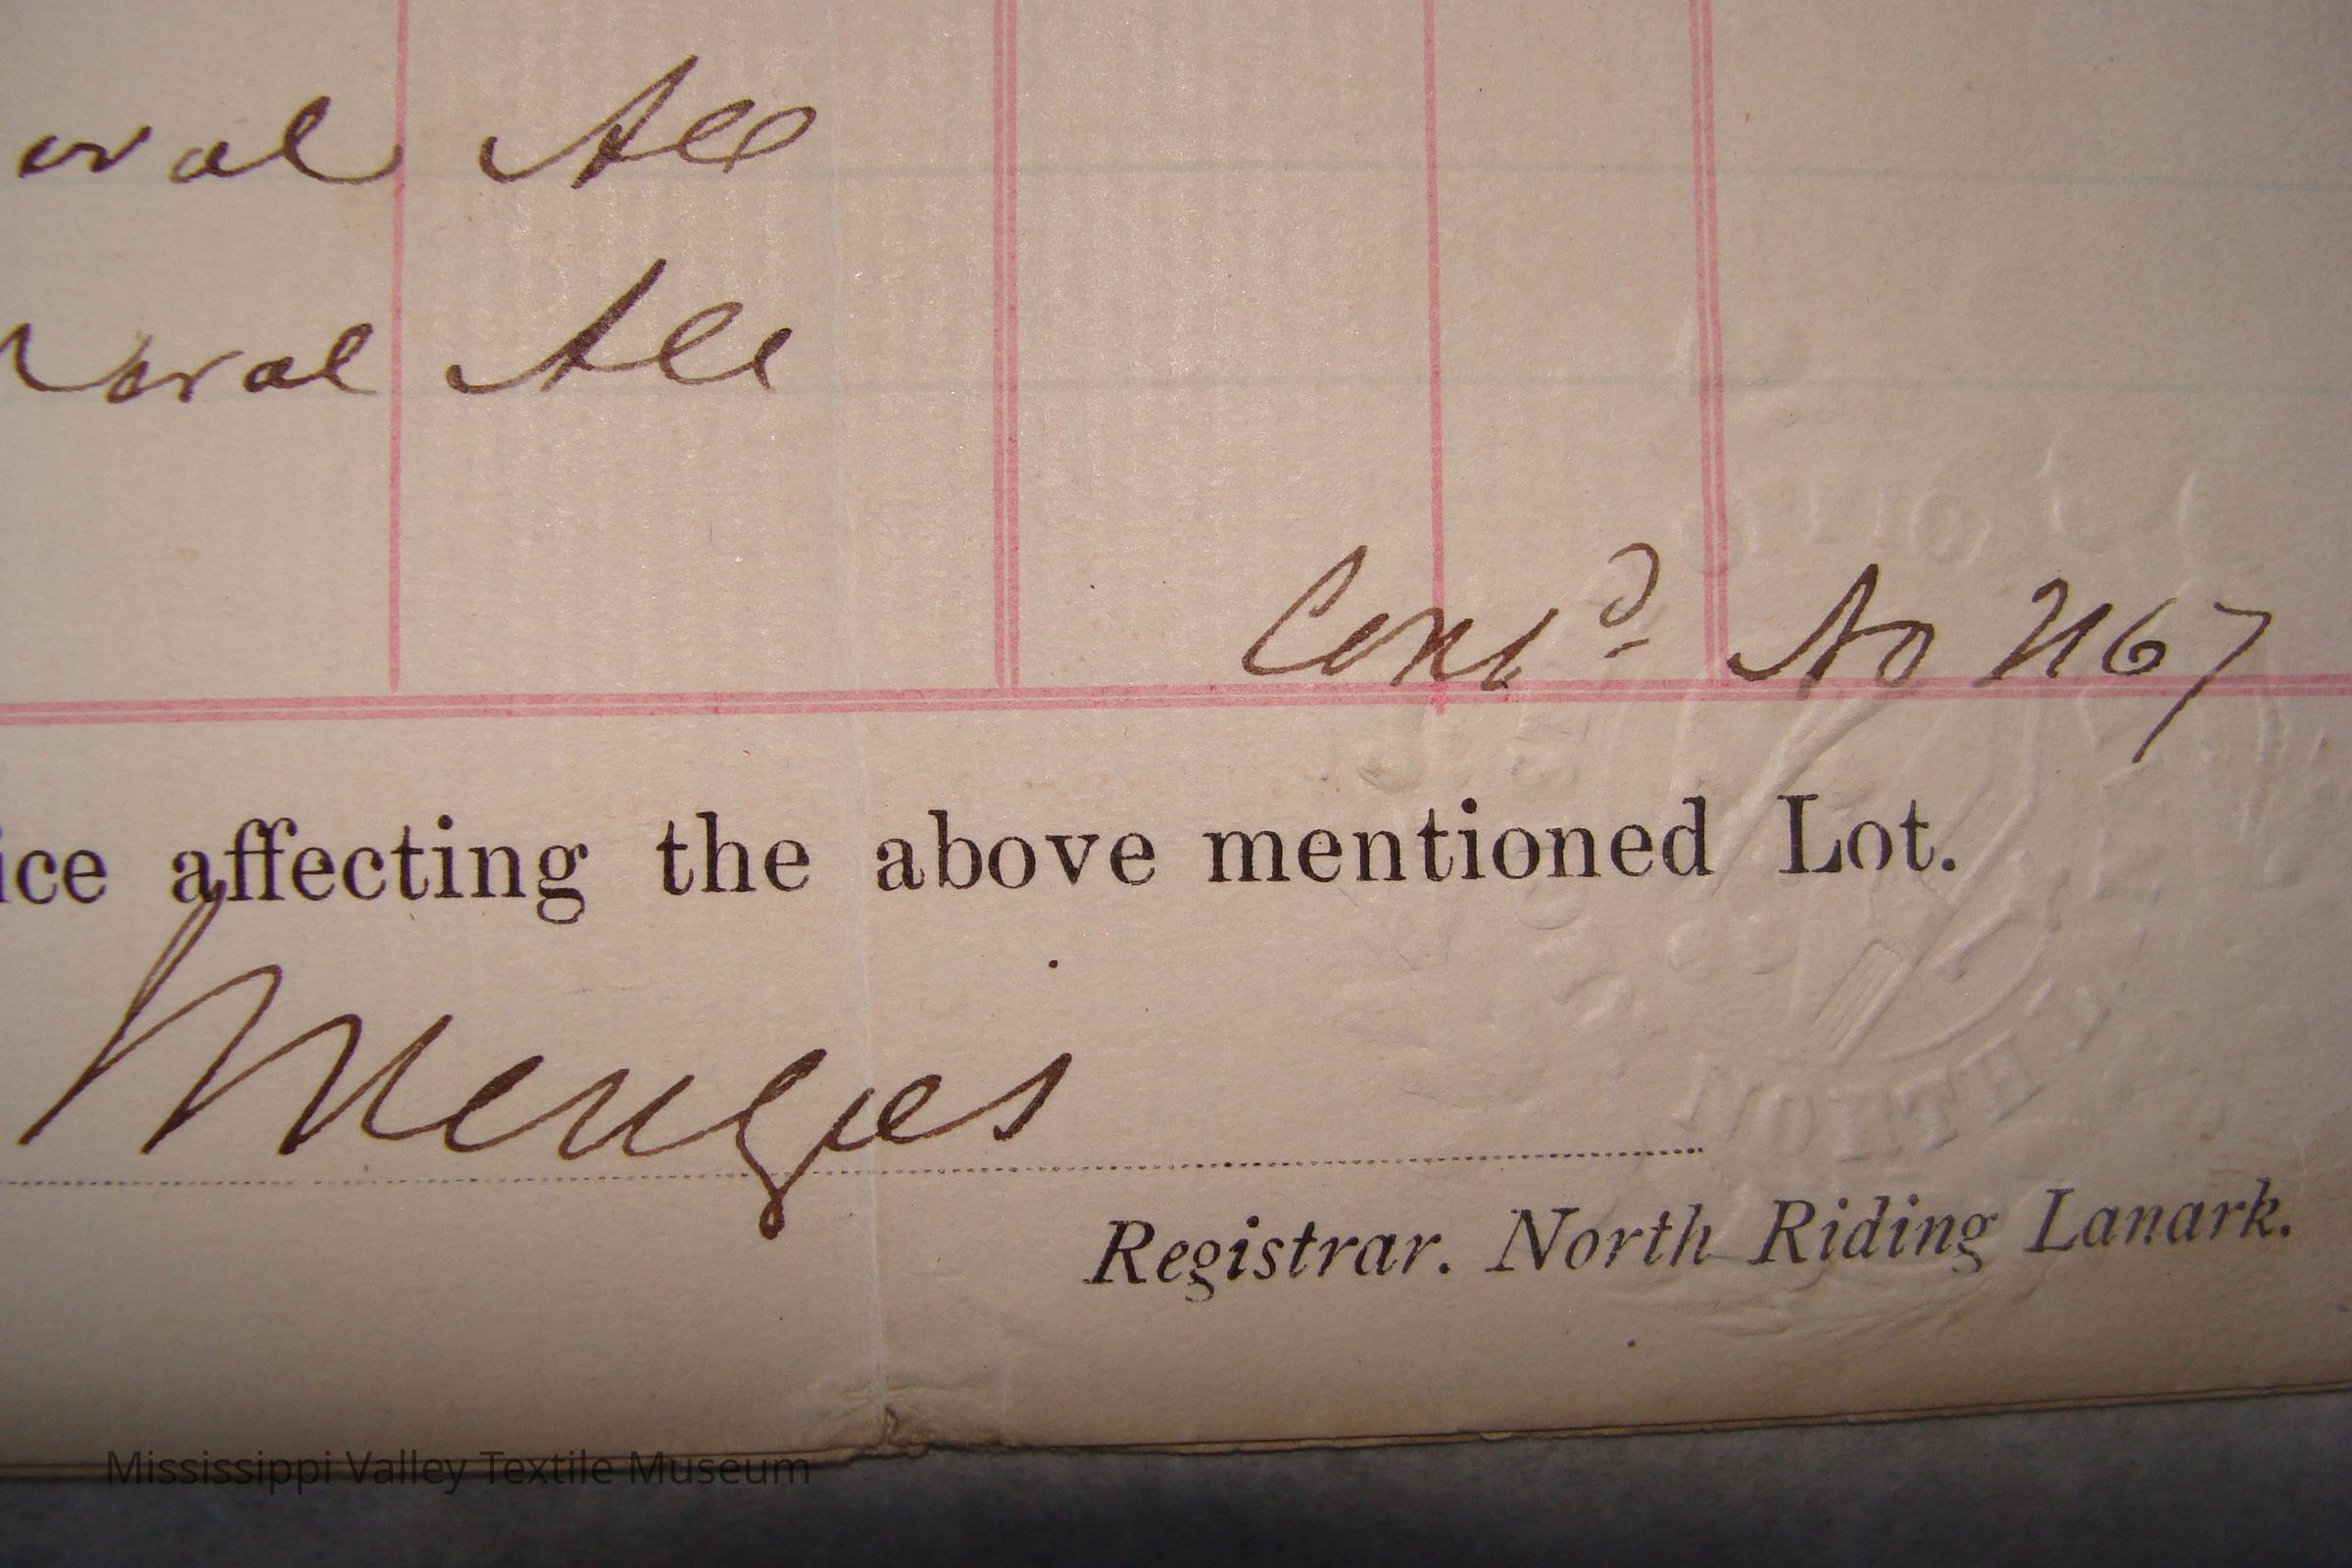 oral All
oral All
Cont^d No 2167
ice affecting the above mentioned Lot.
Menzies
Registrar. North Riding Lanark.
NORTH
Mississippi Valley Textile Museum